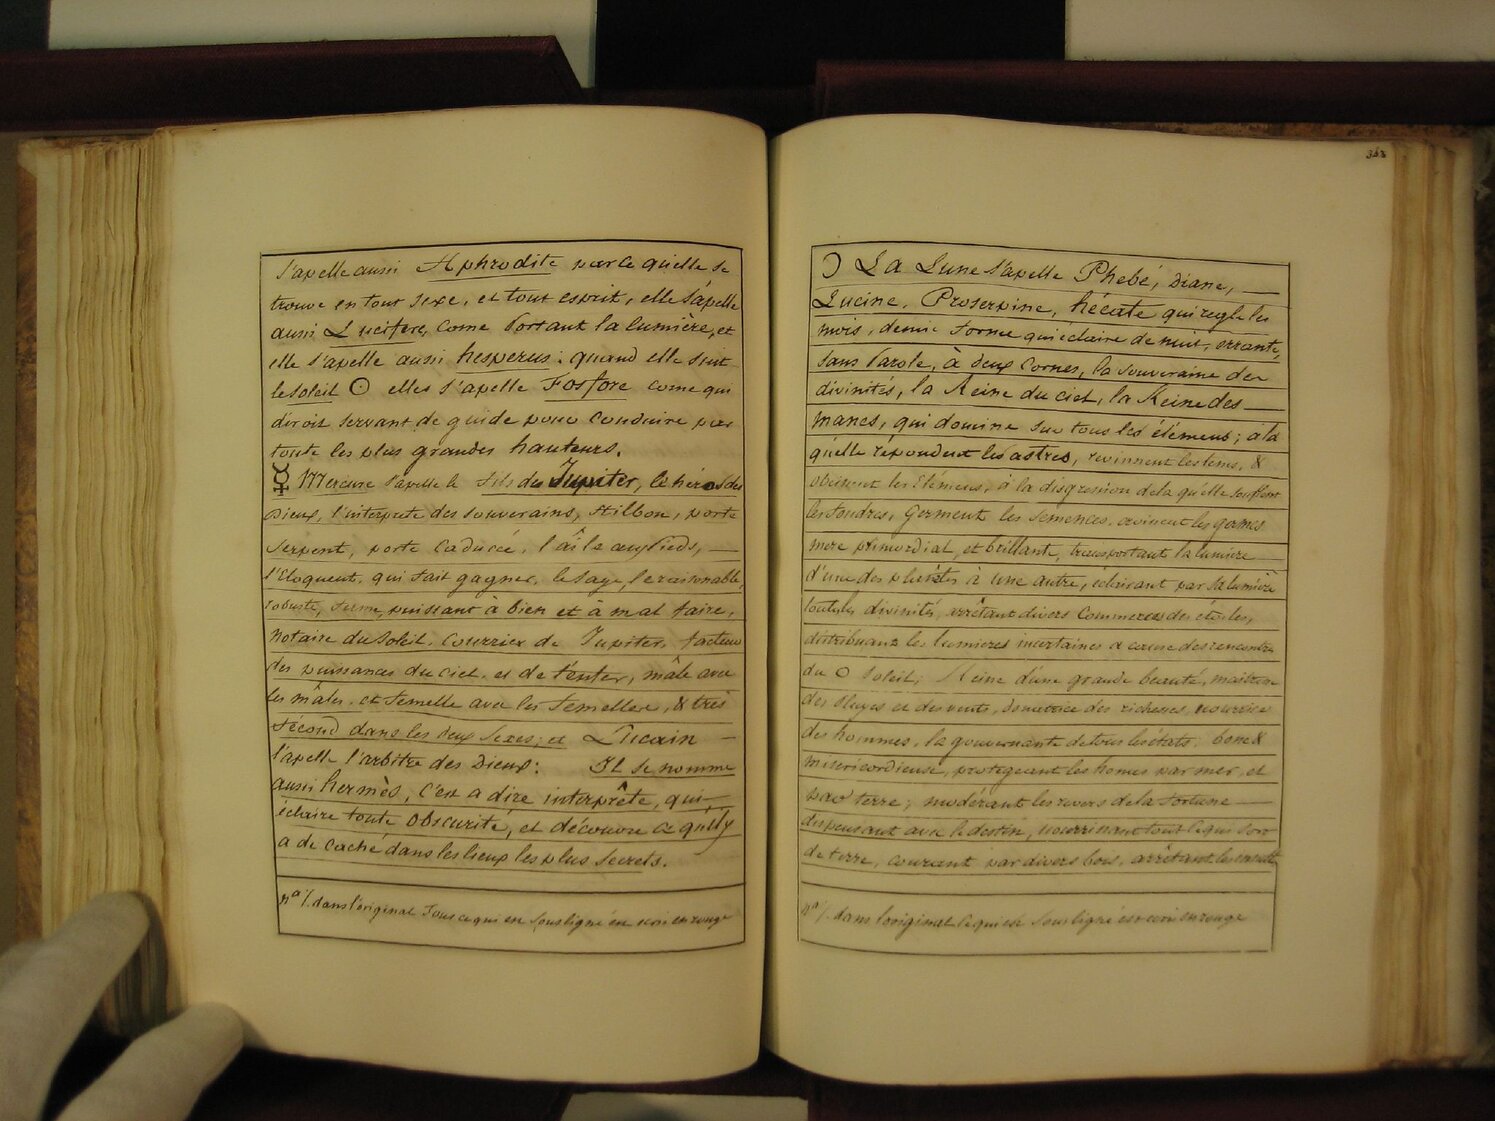 s'apelle aussi Aphrodite parce quelle se
trouve en tout sexe, et tout esprit, elle s'apelle
aussi Lucifere, come Portant la lumière, et
elle s'apelle aussi hesperus: quand elle suit
le soleil ☉ elles s'apelle Fosfore come qui
diroit servant de guide pour conduire par
toute les plus grandes hauteurs.
☿ Mercure s'apelle le fils de Jupiter, le héros des
Dieux, l'interprete des souverains, stilbon, porte
serpent, porte caducée, l'aîlé aux pieds, —
l'Eloquent, qui fait gagner, le sage, le raisonable,
robuste, ferme, puissant à bien et à mal faire,
notaire du soleil, courrier de Jupiter, facteur
des puissances du ciel, et de l'enfer, mâle avec
les mâles, et femelle avec les femelles, & tres
fécond dans les deux sexes; et Lucain —
l'apelle l'arbitre des Dieux: Il se nomme
aussi hermès, c'est a dire interprête, qui,
éclaire toute obscurité, et découvre ce qu'il y
a de caché dans les lieux les plus secrets.
nª /. dans l'original Tous ce qui est souligné ést écrit en rouge
368
☽ La Lune s'apelle Phebé, Diane, —
Lucine, Proserpine, hécate qui regle les
mois, demie formée qui éclaire de nuit, errante,
sans Parole, à deux cornes, la souveraine des
divinités, la Reine du ciel, la Reine des —
manes, qui domine sur tous les élémens; a la
quelle répondent les astres, revinnent les tems, &
obeissent les Elémens, à la disgression de la quelle soufflent
les foudres, Germent les semences, croissent les germes
mere primordial, et brillante, transportant la lumiere —
d'une des planétes à une autre, éclairant par sa lumiére
toutes les divinités, arrêtant divers commerces des étoiles,
distribuant les lumieres incertaines a cause des rencontres
du ☉ soleil; Reine d'une grande beauté, maitresse
des pluyes et des vents, donatrice des richesses, nourrice
des hommes, la gouvernante de tous les états. bone &
misericordieuse, protegeant les homes par mer, et
par terre; modérant les revers de la fortune —
dispensant avec le destin, nourrissant tout ce qui sort
de terre, courant par divers bois, arrêtant les
nª /. dans l'original ce qui est souligné ést écrit en rouge